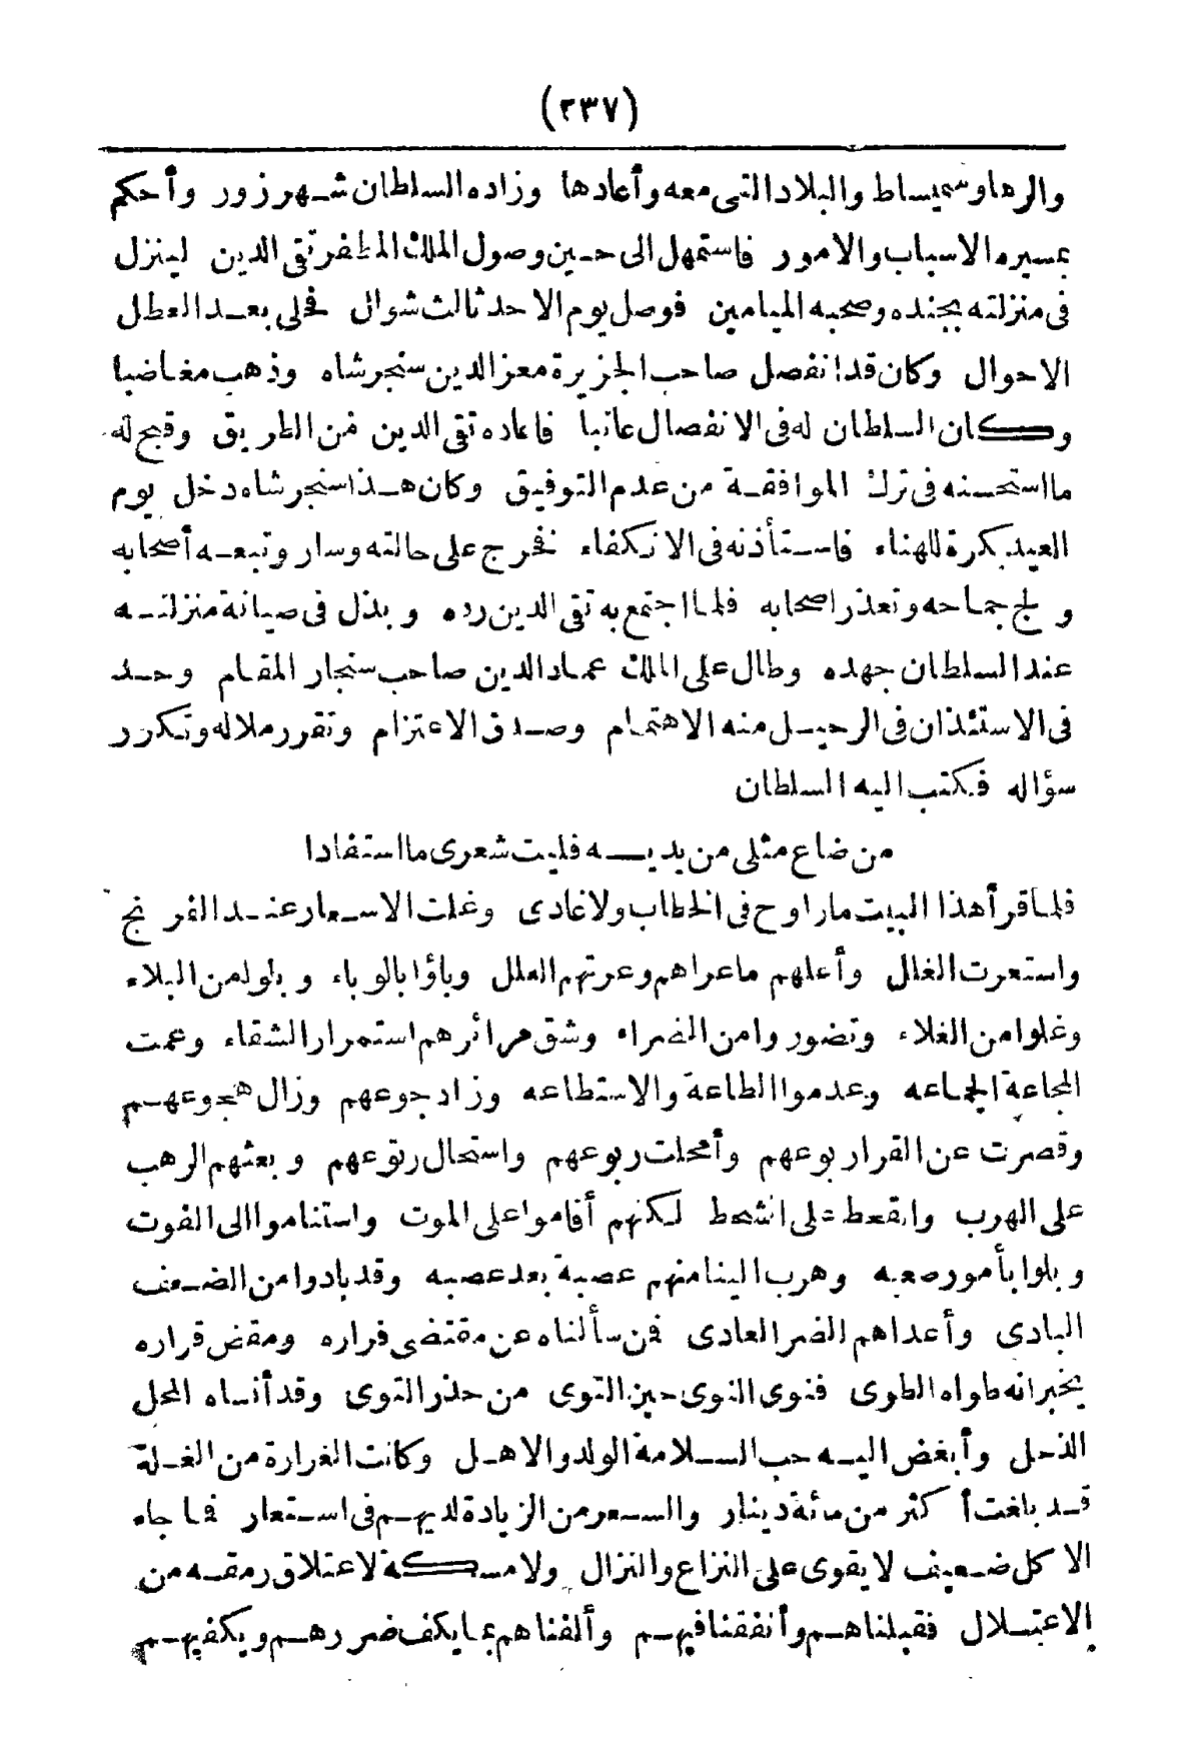 (٢٣٧)
والرها وسميساط والبلاد التى معه وأعادها وزاده السلطان شهرزور وأحكم
بمسيره الاسباب والامور فاستمهل الى حين وصول الملك المظفر تقى الدين لينزل
فى منزلته بجنده وصحبه الميامين فوصل يوم الاحد ثالث شوال فحلى بعد العطل
الاحوال وكان قد انفصل صاحب الجزيرة معز الدين سنجر شاه وذهب مغاضبا
وكان السلطان له فى الانفصال عاتبا فاعاده تقى الدين من الطريق وقبح له
ما استحسنه فى ترك الموافقة من عدم التوفيق وكان هذا سنجر شاه دخل يوم
العيد بكرة للهناء فاستأذنه فى الانكفاء فخرج على حالته وسار وتبعه أصحابه
و لج جماحه وتعذر اصحابه فلما اجتمع به تقى الدين رده و بذل فى صيانة منزلته
عند السلطان جهده وطال على الملك عماد الدين صاحب سنجار المقام وجد
فى الاستئذان فى الرحيل منه الاهتمام وصدق الاعتزام وتقرر ملاله وتكرر
سؤاله فكتب اليه السلطان
من ضاع مثلى من يديه فليت شعرى ما استفادا
فلما قرأ هذا البيت ما راوح فى الخطاب ولا غادى وغلت الاسعار عند الفرنج
واستعرت الغلل وأعلهم ما عراهم وعرتهم العلل وباؤا بالوباء و بلوا من البلاء
وغلوا من الغلاء وتضوروا من الضراء وشق مرائرهم استمرار الشقاء وعمت
المجاعة الجماعه وعدموا الطاعة والاستطاعه وزاد جوعهم وزال هجوعهم
وقصرت عن القرار بوعهم وأمحلت ربوعهم واستحال رتوعهم و بعثهم الرهب
على الهرب والقحط على الشحط لكنهم أقاموا على الموت واستناموا الى الفوت
و بلوا بأمور صعبه وهرب الينا منهم عصبة بعد عصبه وقد بادوا من الضعف
البادى وأعداهم الضر العادى فمن سألناه عن مقتضى فراره ومقض قراره
يخبر انه طواه الطوى فنوى النوى حين التوى من حذر التوى وقد أنساه المحل
الذحل وأبغض اليه حب السلامة الولد والاهل وكانت الغرارة من الغلة
قد بلغت أكثر من مائة دينار والسعر من الزيادة لديهم فى استعار فما جاء
الا كل ضعيف لا يقوى على النزاع والنزال ولا مسكة لاعتلاق رمقه من
الاعتلال فقبلناهم وأنفقنا فيهم وألفناهم بما يكف ضررهم ويكفيهم